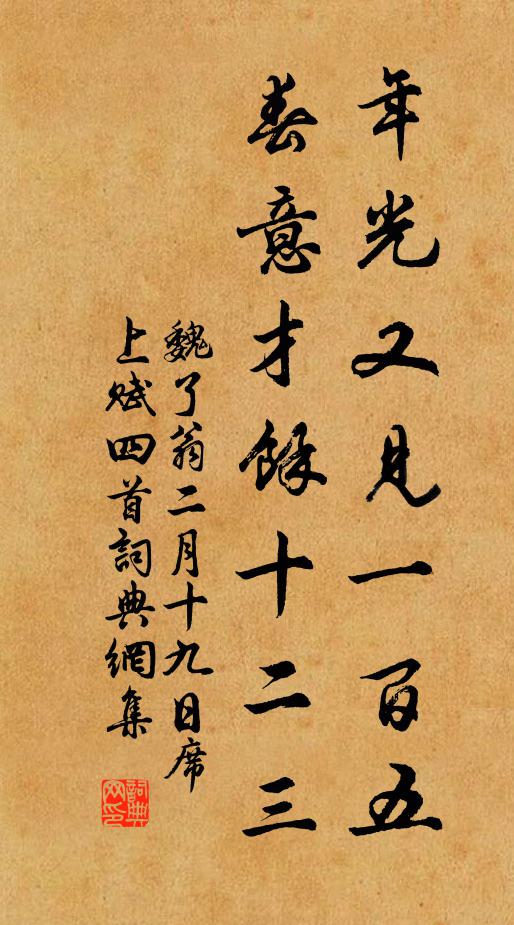 年光又見一百五
春意才餘十二三
魏了翁二月十九日席
上赋四首詞典網集
詞典
网印